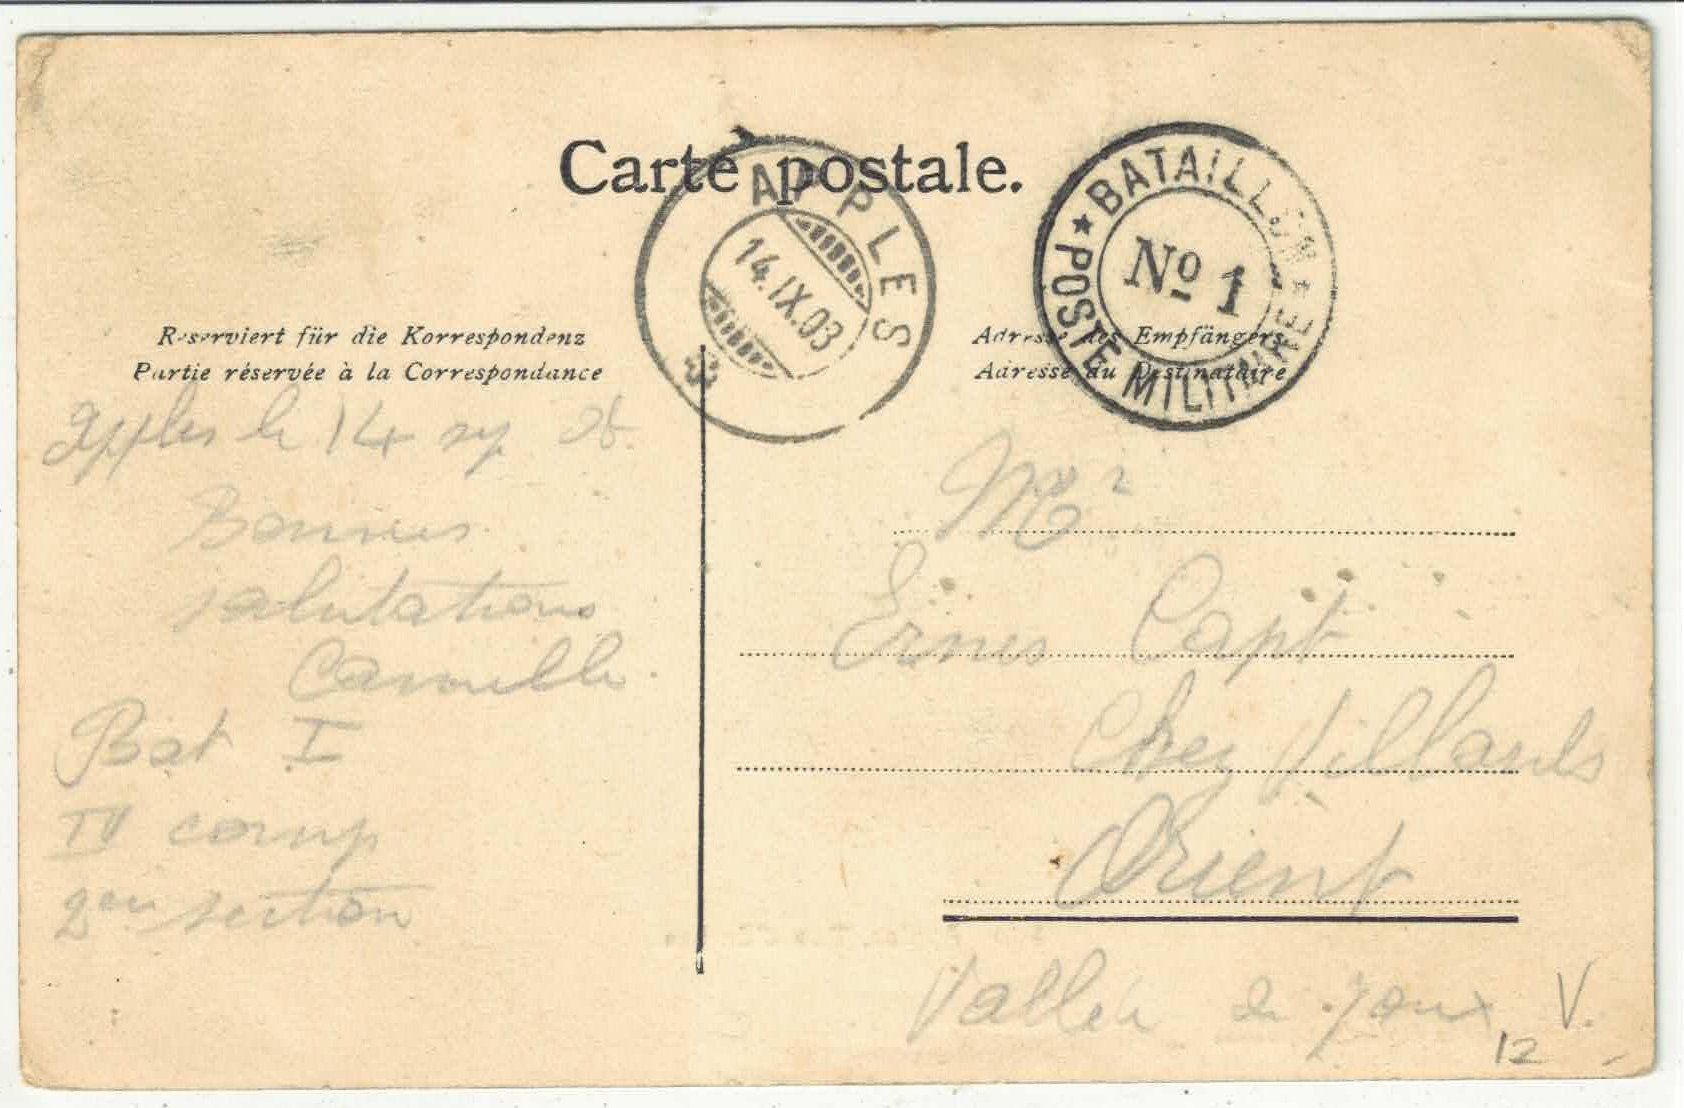 Carte postale.
APPLES
14.IX.03
★ BATAILLON ★
No 1
POSTE MILITAIRE
Reserviert für die Korrespondenz
Partie réservée à la Correspondance
Adresse des Empfängers
Adresse du Destinataire
Apples le 14
Bonnes
salutations
Camille.
Bat I
IV comp
2em section
Mr
Ernes Capt
Chez Villards
Orient
Vallée de Joux V.
12